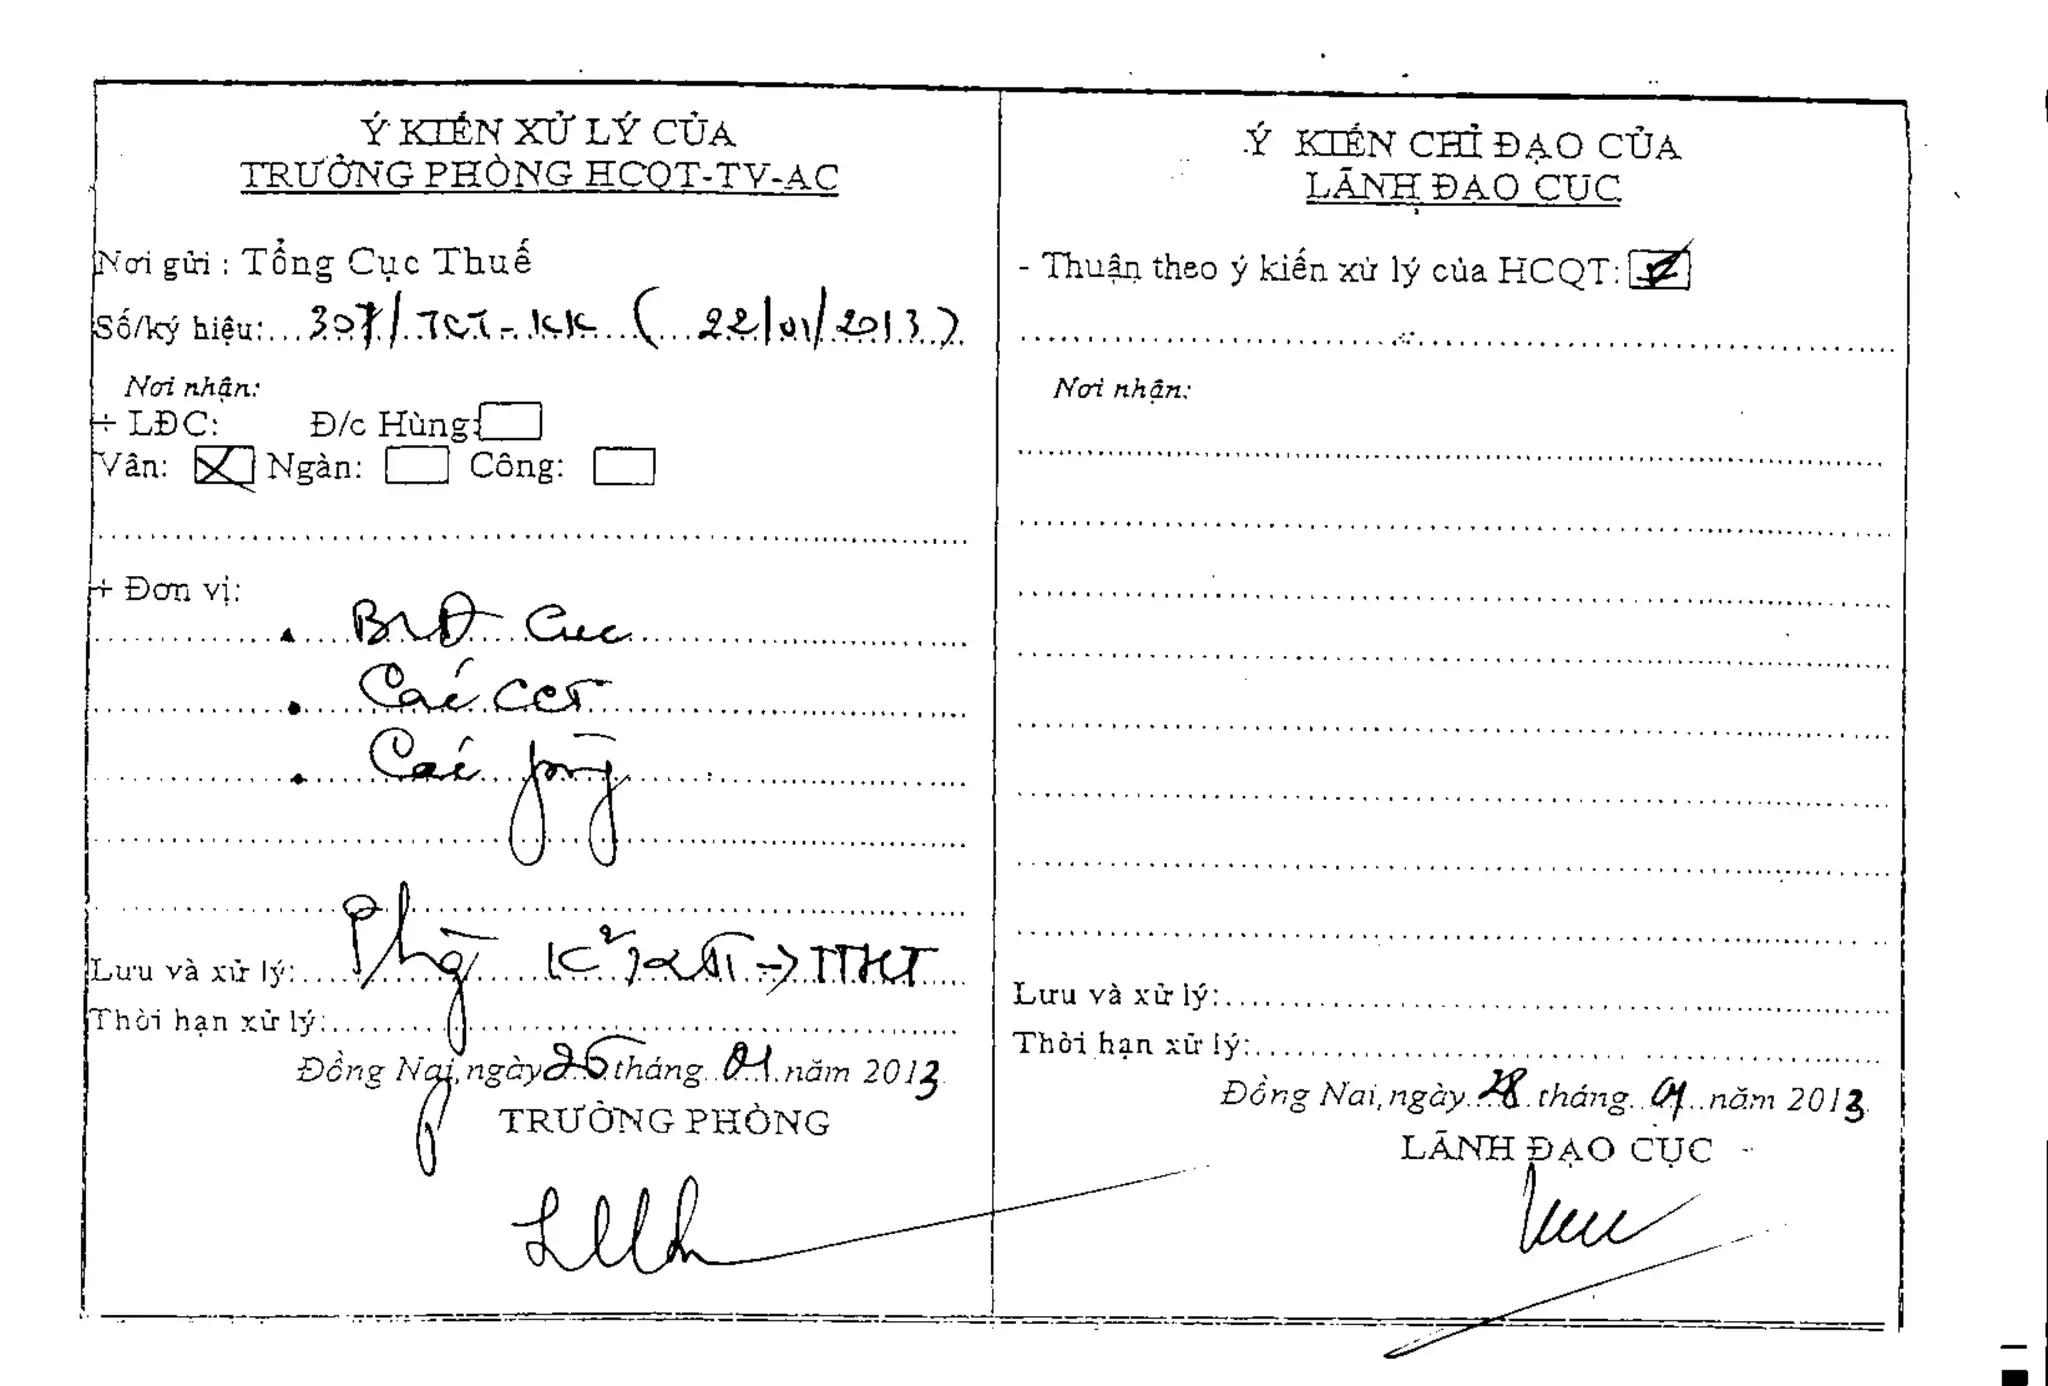 Ý KIẾN XỬ LÝ CỦA
TRƯỞNG PHÒNG HCQT-TV-AC
Nơi gửi : Tổng Cục Thuế
Số/ký hiệu: 307/TCT-KK ( 22/01/2013 )
Nơi nhận:
+ LĐC: Đ/c Hùng:
Vân: Ngàn: Công:
+ Đơn vị:
BLĐ Cục
Các CCT
Các phòng
Lưu và xử lý: Phòng → TTHT
Thời hạn xử lý:
Đồng Nai, ngày 25 tháng 01 năm 2013
TRƯỞNG PHÒNG
Ý KIẾN CHỈ ĐẠO CỦA
LÃNH ĐẠO CỤC
- Thuận theo ý kiến xử lý của HCQT:
Nơi nhận:
Lưu và xử lý:
Thời hạn xử lý:
Đồng Nai, ngày 28 tháng 01 năm 2013
LÃNH ĐẠO CỤC